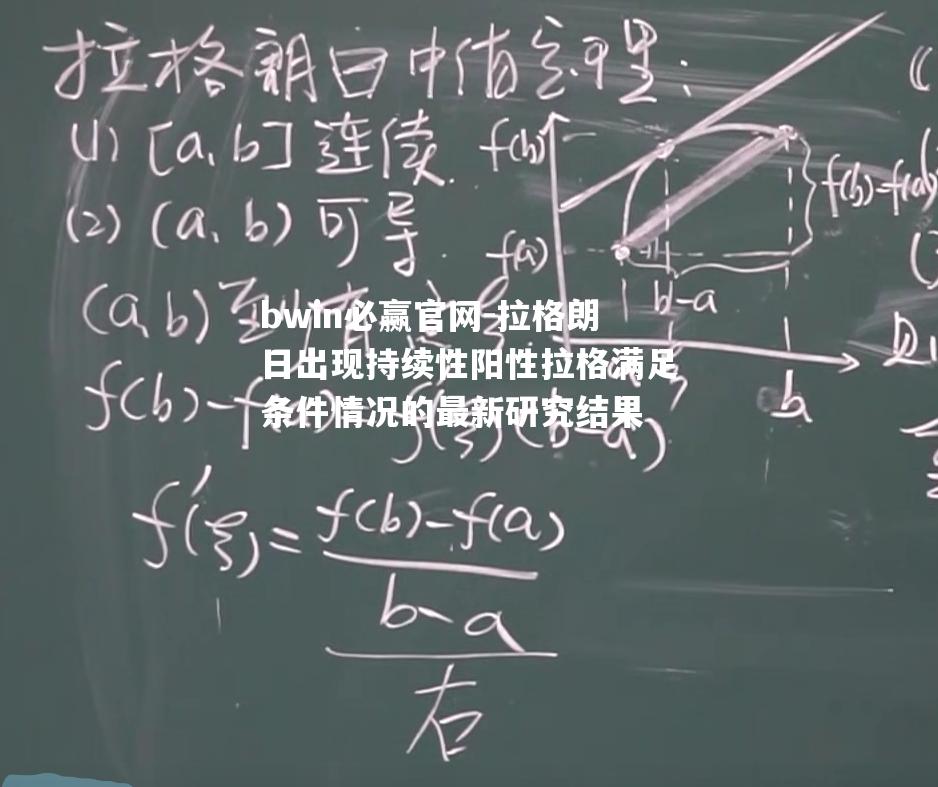 拉格朗日中值定理:
(1) [a,b] 连续
(2) (a,b) 可导.
f(b)
f(a)
f(b)-f(a)
b-a
b
(a,b) 至
bwin必赢官网-拉格朗
日出现持续性阳性拉格满足
条件情况的最新研究结果
f(b)-f(
f(ξ)(b-a)
f′(ξ)=
f(b)-f(a)
b-a
右